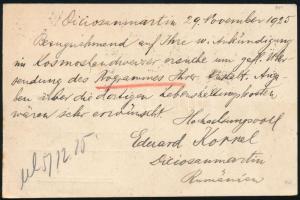 Diciosanmartin 29. November 1925
Bezugnehmend auf Ihre w. Ankündigung
im Kosmoshandweiser ersuche um gefl. Über-
sendung des Programmes Ihrer Anstalt. Anga-
ben über die dortigen Lebenshaltungskosten
wären sehr erwünscht. Hochachtungsvoll
Eduard
Diciosanmartin
Rumänien
5/12. 25